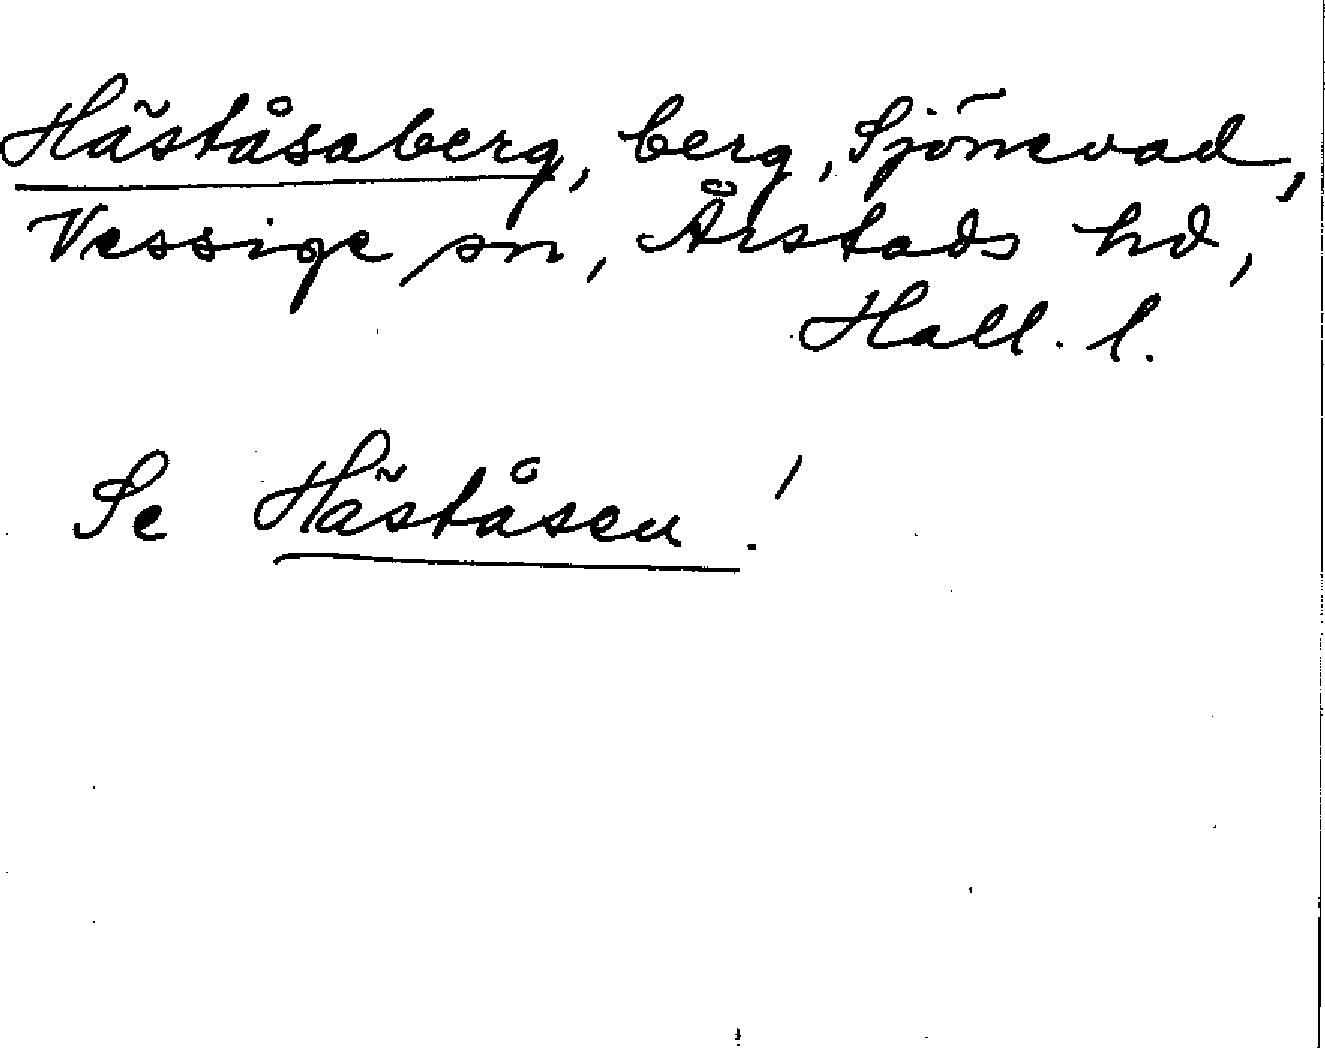 Häståsaberg, berg, Sjönevad,
Vessige sn, Årstads hd,
Hall. l.
Se Häståsen!